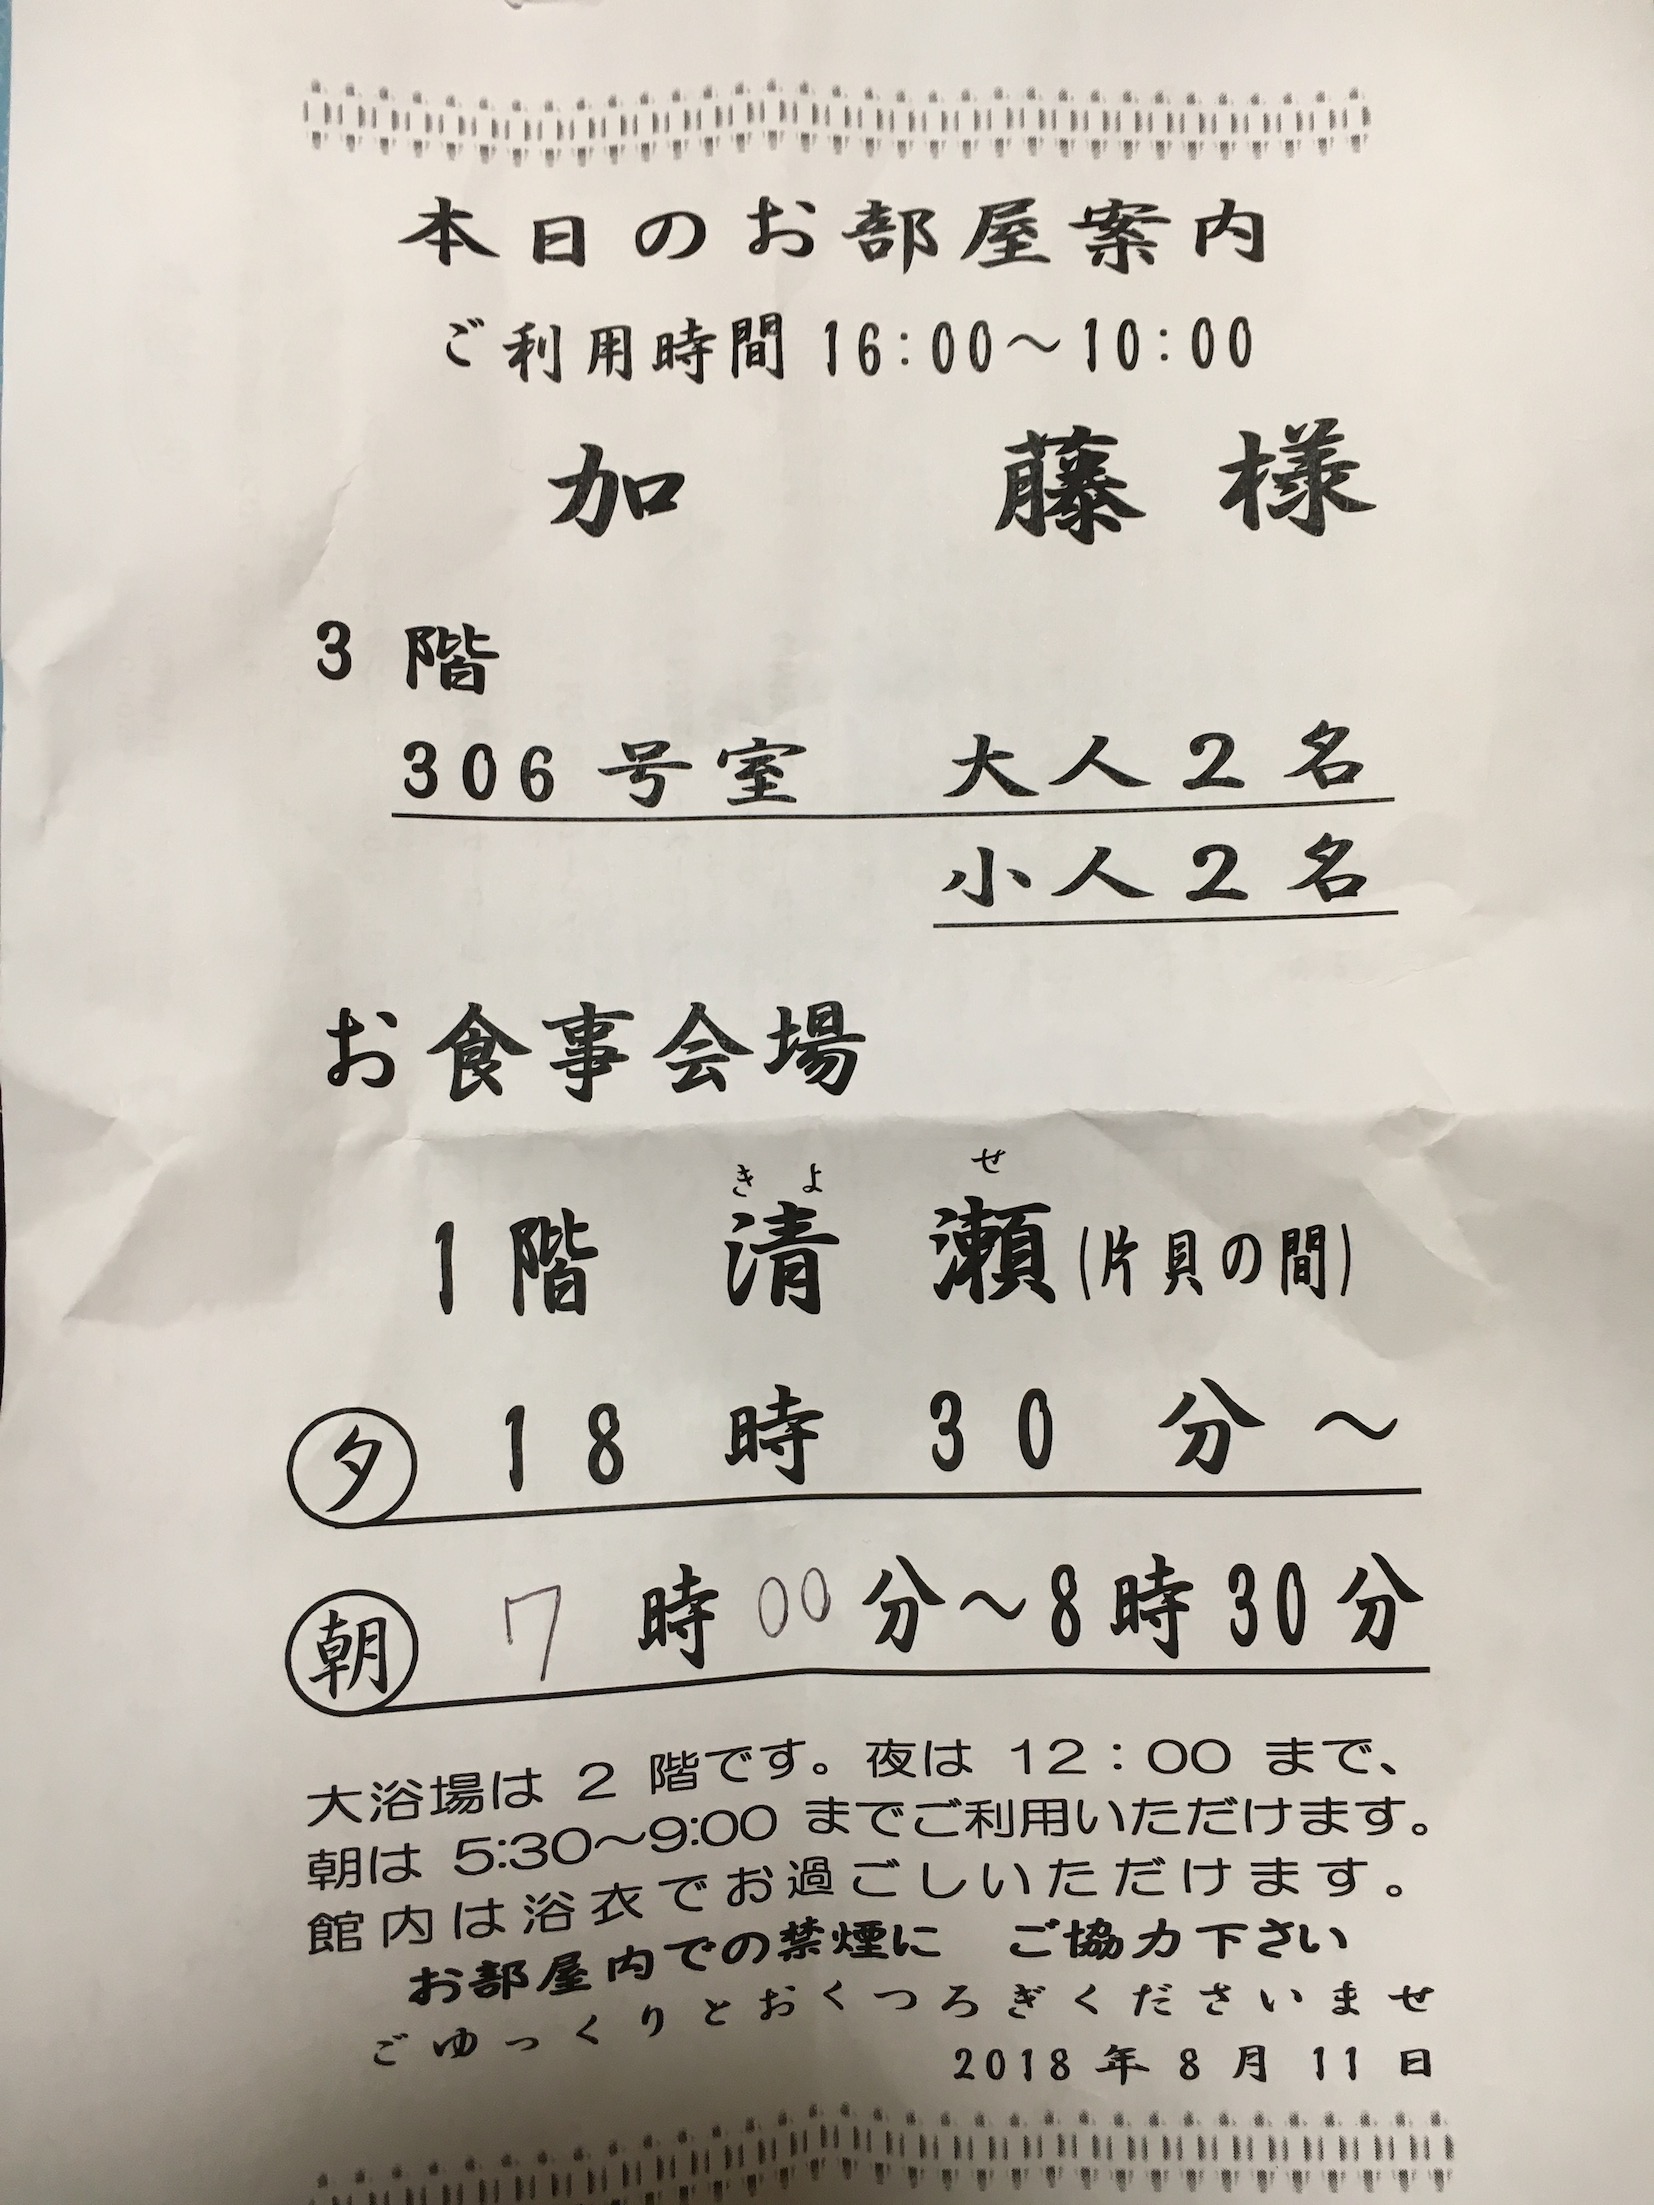 本日のお部屋案内
ご利用時間 16:00～10:00
加 藤 様
3 階
306 号室 大人 2 名
小人 2 名
お食事会場
きよ せ
1 階 清 瀬 (片貝の間)
夕 18 時 30 分～
朝 7 時 00 分～8 時 30 分
大浴場は 2 階です。夜は 12：00 まで、
朝は 5:30～9:00 までご利用いただけます。
館内は浴衣でお過ごしいただけます。
お部屋内での禁煙に ご協力下さい
ごゆっくりとおくつろぎくださいませ
2018 年 8 月 11 日